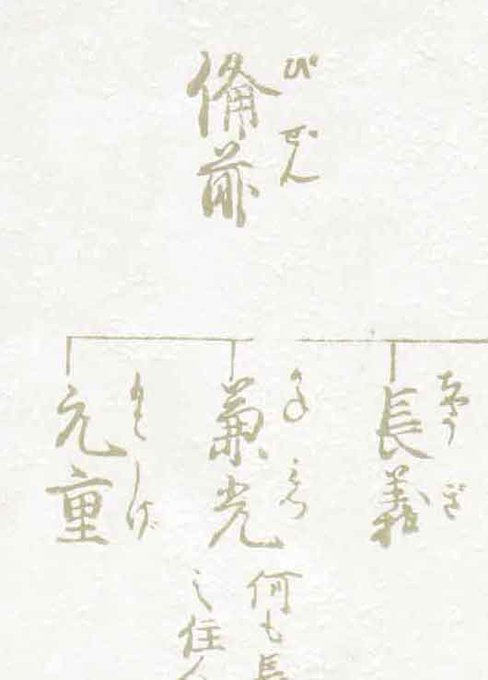 備前
びぜん
長義
ちやうぎ
兼光
かねみつ
元重
もとしげ
何も長
之住人